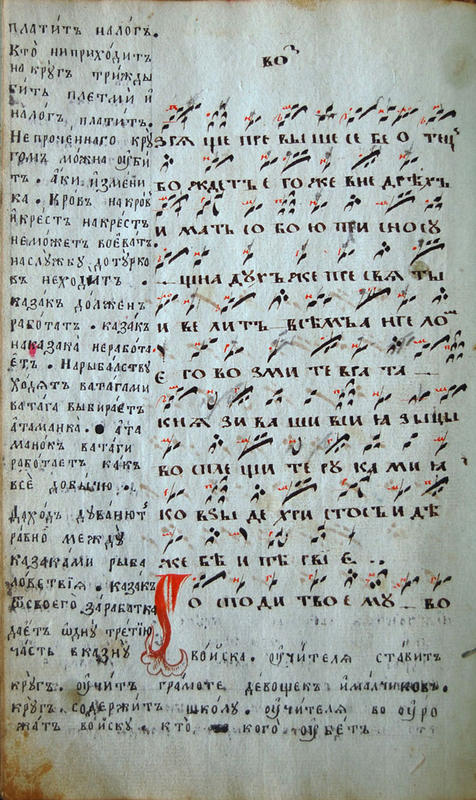 платитъ налогъ.
Кто́ ниприходитъ
на кругъ трижды
бить плетми й
налогъ платитъ.
Непроче́ннаго кру
гомъ можна оуби
тъ. Аки измени
ка. Кровъ на кров
й крестъ на крестъ
неможетъ воеватъ
наслужбу до турко
въ неходитъ.
казакъ долженъ
работатъ. казакъ
наказака неработа
етъ. Нарыбалству
ходятъ ватагами
ватага выбираетъ
атаманка. ата
манокъ ватаги
работаетъ какъ
все добычю.
Даходъ дуванютъ
равно между
казаками рыба
ловствїя. казакъ
ѿсвоего заработка
даетъ ѡдну третїю
часть вказну
во
зѧ ще пре вы ше се бе о тец
во ждетъ е го же вне дрѣхъ
и мать со бо ю при сно су
щна духъ же пре свѧ ты
и ве литъ всѣмъ а нге ло
є го во зми те вра та
кнѧ зи ва ши вси ꙗ зы цы
во спле щи те ру ка ми ꙗ
ко взы де хри стосъ и дѣ
же бѣ и пѣ рвы е
Го спо ди тво е му во
войска. оучителя ставитъ
кругъ. оучитъ грамоте девошекъ ималчиковъ.
кругъ содержитъ школу. оучителя во оуро
жатъ войску. кто кого оубетъ